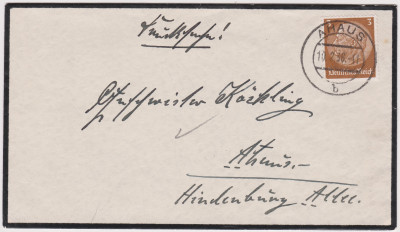 Drucksache!
AHAUS
3
Deutsches Reich
b
Geschwister Köckling
Ahaus.-
Hindenburg Allee.